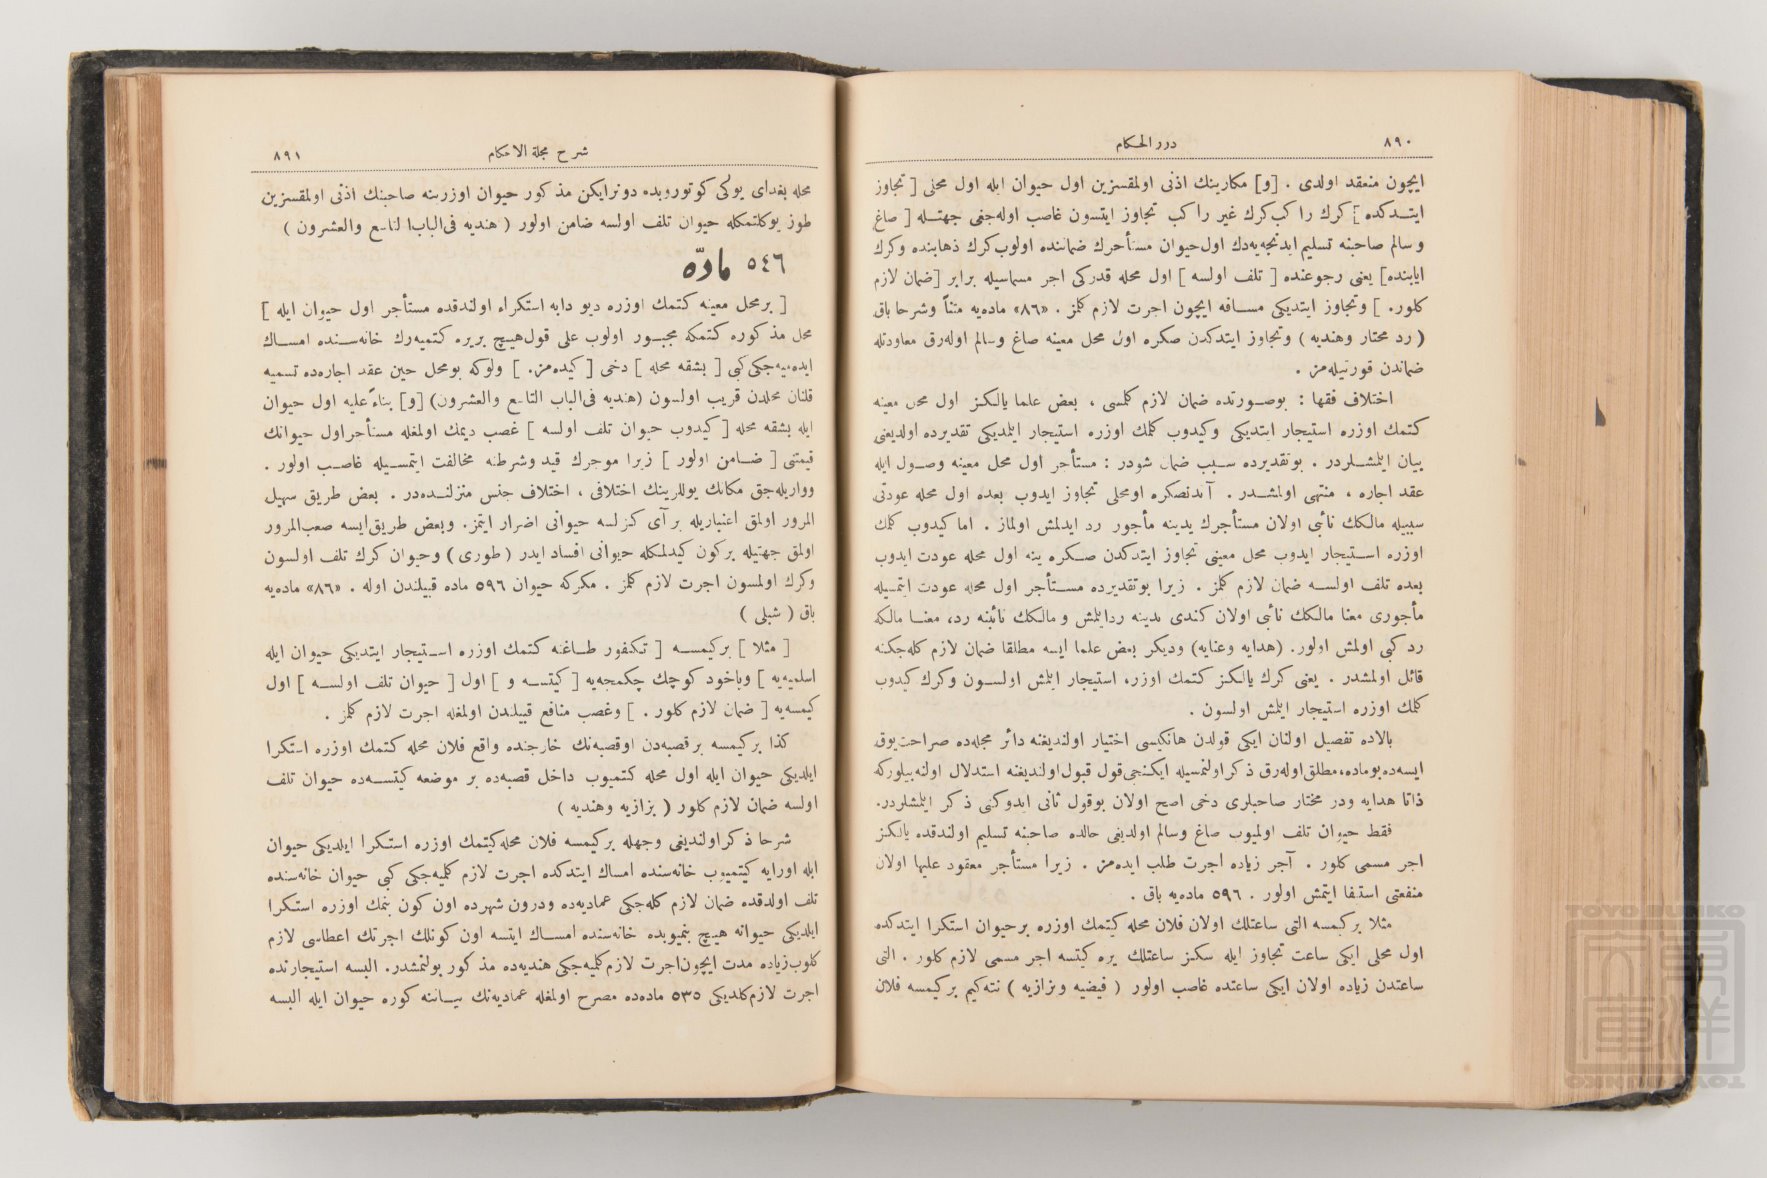 ٨٩٠
درر الحكام
ايچون منعقد اولدى . [و] مكارينك اذنى اولمقسزين اول حيوان ايله اول محلى [ تجاوز
ايتدكده ] كرك راكب كرك غير راكب تجاوز ايتسون غاصب اوله‌جغى جهتله [ صاغ
و سالم صاحبنه تسليم ايدنجه‌يه‌دك اول حيوان مستأجرك ضماننده اولوب كرك ذهابنده وكرك
ايابنده] يعنى رجوعنده [ تلف اولسه ] اول محله قدركى اجر مسماسيله برابر [ضمان لازم
كلور. ] وتجاوز ايتديكى مسافه ايچون اجرت لازم كلمز . «٨٦» ماده‌يه متناً وشرحا باق
( رد محتار وهنديه ) وتجاوز ايتدكدن صكره اول محل معينه صاغ وسالم اوله‌رق معاودتله
ضماندن قورتيله‌مز .
اختلاف فقها : بوصورتده ضمان لازم كلمسى ، بعض علما يالكز اول محل معينه
كتمك اوزره استيجار ايتديكى وكيدوب كلمك اوزره استيجار ايلمديكى تقديرده اولديغنى
بيان ايلمشلردر . بوتقديرده سبب ضمان شودر : مستأجر اول محل معينه وصول ايله
عقد اجاره ، منتهى اولمشدر . آندنصكره اومحلى تجاوز ايدوب بعده اول محله عودتى
سببيله مالكك نائبى اولان مستأجرك يدينه مأجور رد ايدلمش اولماز . اما كيدوب كلمك
اوزره استيجار ايدوب محل معينى تجاوز ايتدكدن صكره ينه اول محله عودت ايدوب
بعده تلف اولسه ضمان لازم كلمز . زيرا بوتقديرده مستأجر اول محله عودت ايتمسيله
مأجورى معنا مالكك نائبى اولان كندى يدينه ردايلمش و مالكك نائبنه رد، معنا مالكه
رد كبى اولمش اولور. (هدايه وعنايه) وديكر بعض علما ايسه مطلقا ضمان لازم كله‌جكنه
قائل اولمشدر . يعنى كرك يالكز كتمك اوزره استيجار ايلمش اولسون وكرك كيدوب
كلمك اوزره استيجار ايلمش اولسون .
بالاده تفصيل اولنان ايكى قولدن هانكيسى اختيار اولنديغنه دائر مجله‌ده صراحت يوق
ايسه‌ده بوماده، مطلق اوله‌رق ذكر اولنمسيله ايكنجى قول قبول اولنديغنه استدلال اولنه‌بيلوركه
ذاتا هدايه ودر مختار صاحبلرى دخى اصح اولان بوقول ثانى ايدوكنى ذكر ايلمشلردر.
فقط حيوان تلف اولميوب صاغ وسالم اولديغى حالده صاحبنه تسليم اولندقده يالكز
اجر مسمى كلور . آجر زياده اجرت طلب ايده‌مز . زيرا مستأجر معقود عليها اولان
منفعتى استيفا ايتمش اولور . ٥٩٦ ماده‌يه باق .
مثلا بركيمسه التى ساعتلك اولان فلان محله كيتمك اوزره برحيوان استكرا ايتدكده
اول محلى ايكى ساعت تجاوز ايله سكز ساعتلك يره كيتسه اجر مسمى لازم كلور . التى
ساعتدن زياده اولان ايكى ساعتده غاصب اولور ( فيضيه وبزازيه ) نته‌كيم بركيمسه فلان
شرح مجلة الاحكام
٨٩١
محله بغداى يوكى كوتوروبده دونرايكن مذكور حيوان اوزرينه صاحبنك اذنى اولمقسزين
طوز يوكلتمكله حيوان تلف اولسه ضامن اولور ( هنديه فى الباب التاسع والعشرون )
٥٤٦ مادّه
[ برمحل معينه كتمك اوزره ديو دابه استكراء اولندقده مستأجر اول حيوان ايله ]
محل مذكوره كتمكه مجبور اولوب على قول هيچ بريره كتميه‌رك خانه‌سنده امساك
ايده‌ميه‌جكى كبى [ بشقه محله ] دخى [ كيده‌مز. ] ولوكه بومحل حين عقد اجاره‌ده تسميه
قلنان محلدن قريب اولسون (هنديه فى الباب التاسع والعشرون) [و] بناءً عليه اول حيوان
ايله بشقه محله [ كيدوب حيوان تلف اولسه ] غصب ديمك اولمغله مستأجر اول حيوانك
قيمتنى [ ضامن اولور ] زيرا موجرك قيد وشرطنه مخالفت ايتمسيله غاصب اولور .
وواريله‌جق مكانك يوللرينك اختلافى ، اختلاف جنس منزلنده‌در . بعض طريق سهيل
المرور اولمق اعتباريله بر آى كزلسه حيوانى اضرار ايتمز. وبعض طريق ايسه صعب المرور
اولمق جهتيله بركون كيدلمكله حيوانى افساد ايدر ( طورى ) وحيوان كرك تلف اولسون
وكرك اولمسون اجرت لازم كلمز . مكركه حيوان ٥٩٦ ماده قبيلندن اوله . «٨٦» ماده‌يه
باق ( شبلى )
[ مثلا ] بركيمسه [ تكفور طاغنه كتمك اوزره استيجار ايتديكى حيوان ايله
اسلميه‌يه ] وياخود كوچك چكمجه‌يه [ كيتسه و ] اول [ حيوان تلف اولسه ] اول
كيمسه‌يه [ ضمان لازم كلور . ] وغصب منافع قبيلندن اولمغله اجرت لازم كلمز .
كذا بركيمسه برقصبه‌دن اوقصبه‌نك خارجنده واقع فلان محله كتمك اوزره استكرا
ايلديكى حيوان ايله اول محله كتميوب داخل قصبه‌ده بر موضعه كيتسه‌ده حيوان تلف
اولسه ضمان لازم كلور ( بزازيه وهنديه )
شرحا ذكر اولنديغى وجهله بركيمسه فلان محله كيتمك اوزره استكرا ايلديكى حيوان
ايله اورايه كيتميوب خانه‌سنده امساك ايتدكده اجرت لازم كلميه‌جكى كبى حيوان خانه‌سنده
تلف اولدقده ضمان لازم كله‌جكى عماديه‌ده ودرون شهرده اون كون بنمك اوزره استكرا
ايلديكى حيوانه هيچ بنميوبده خانه‌سنده امساك ايتسه اون كونلك اجرتك اعطاسى لازم
كلوب زياده مدت ايچون اجرت لازم كلميه‌جكى هنديه‌ده مذكور بولنمشدر. البسه استيجارنده
اجرت لازم كلديكى ٥٣٥ ماده‌ده مصرح اولمغله عماديه‌نك بيانه كوره حيوان ايله البسه
TOYO BUNKO
東洋
文庫
TOYO BUNKO